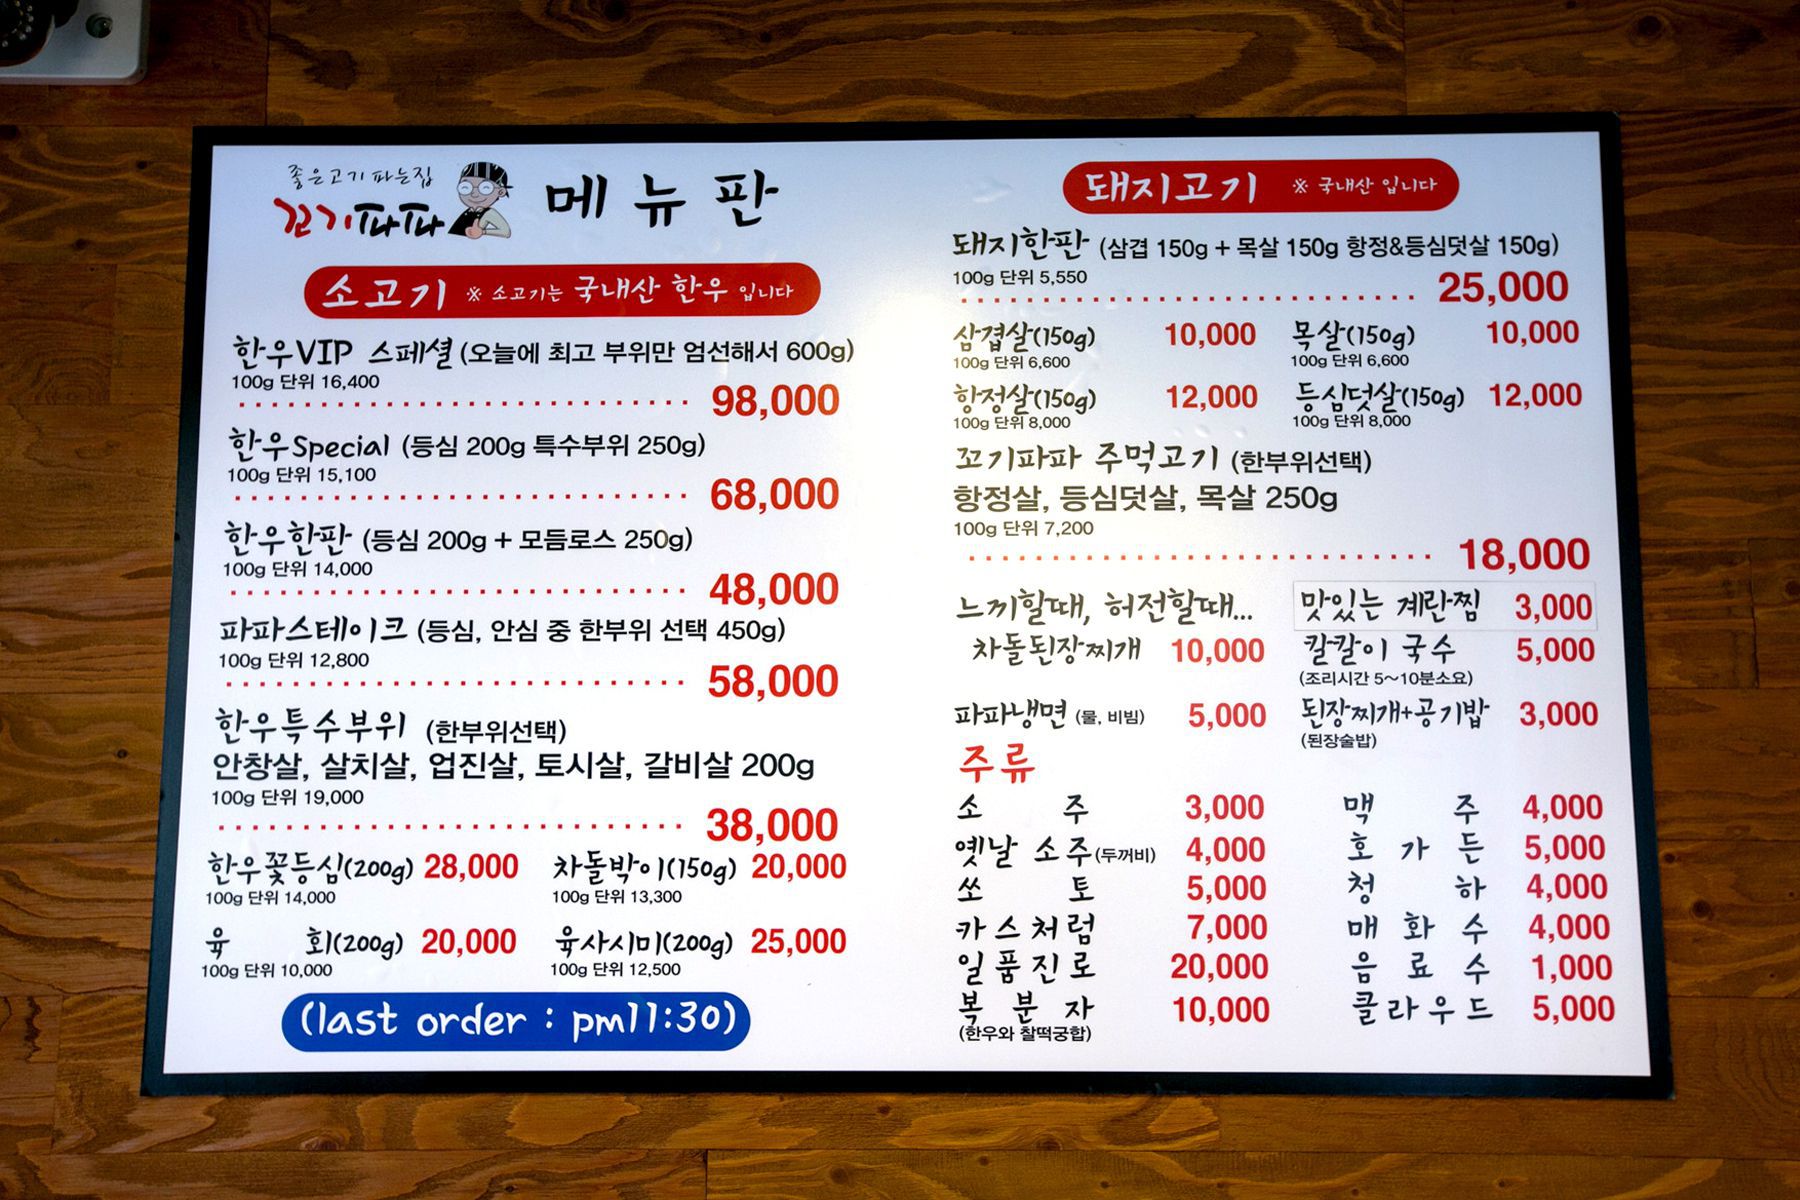 좋은고기 파는집
꼬기파파
메뉴판
소고기 ※ 소고기는 국내산 한우 입니다
한우VIP 스페셜 (오늘에 최고 부위만 엄선해서 600g)
100g 단위 16,400
98,000
한우Special (등심 200g 특수부위 250g)
100g 단위 15,100
68,000
한우한판 (등심 200g + 모듬로스 250g)
100g 단위 14,000
48,000
파파스테이크 (등심, 안심 중 한부위 선택 450g)
100g 단위 12,800
58,000
한우특수부위 (한부위선택)
안창살, 살치살, 업진살, 토시살, 갈비살 200g
100g 단위 19,000
38,000
한우꽃등심(200g) 28,000 차돌박이(150g) 20,000
100g 단위 14,000 100g 단위 13,300
육 회(200g) 20,000 육사시미(200g) 25,000
100g 단위 10,000 100g 단위 12,500
(last order : pm11:30)
돼지고기 ※ 국내산 입니다
돼지한판 (삼겹 150g + 목살 150g 항정&등심덧살 150g)
100g 단위 5,550
25,000
삼겹살(150g) 10,000 목살(150g) 10,000
100g 단위 6,600 100g 단위 6,600
항정살(150g) 12,000 등심덧살(150g) 12,000
100g 단위 8,000 100g 단위 8,000
꼬기파파 주먹고기 (한부위선택)
항정살, 등심덧살, 목살 250g
100g 단위 7,200
18,000
느끼할때, 허전할때... 맛있는 계란찜 3,000
차돌된장찌개 10,000 칼칼이 국수 5,000
(조리시간 5~10분소요)
파파냉면 (물, 비빔) 5,000 된장찌개+공기밥 3,000
(된장술밥)
주류
소 주 3,000 맥 주 4,000
옛날 소주(두꺼비) 4,000 호 가 든 5,000
쏘 토 5,000 청 하 4,000
카스처럼 7,000 매 화 수 4,000
일품진로 20,000 음 료 수 1,000
복 분 자 10,000 클라우드 5,000
(한우와 찰떡궁합)